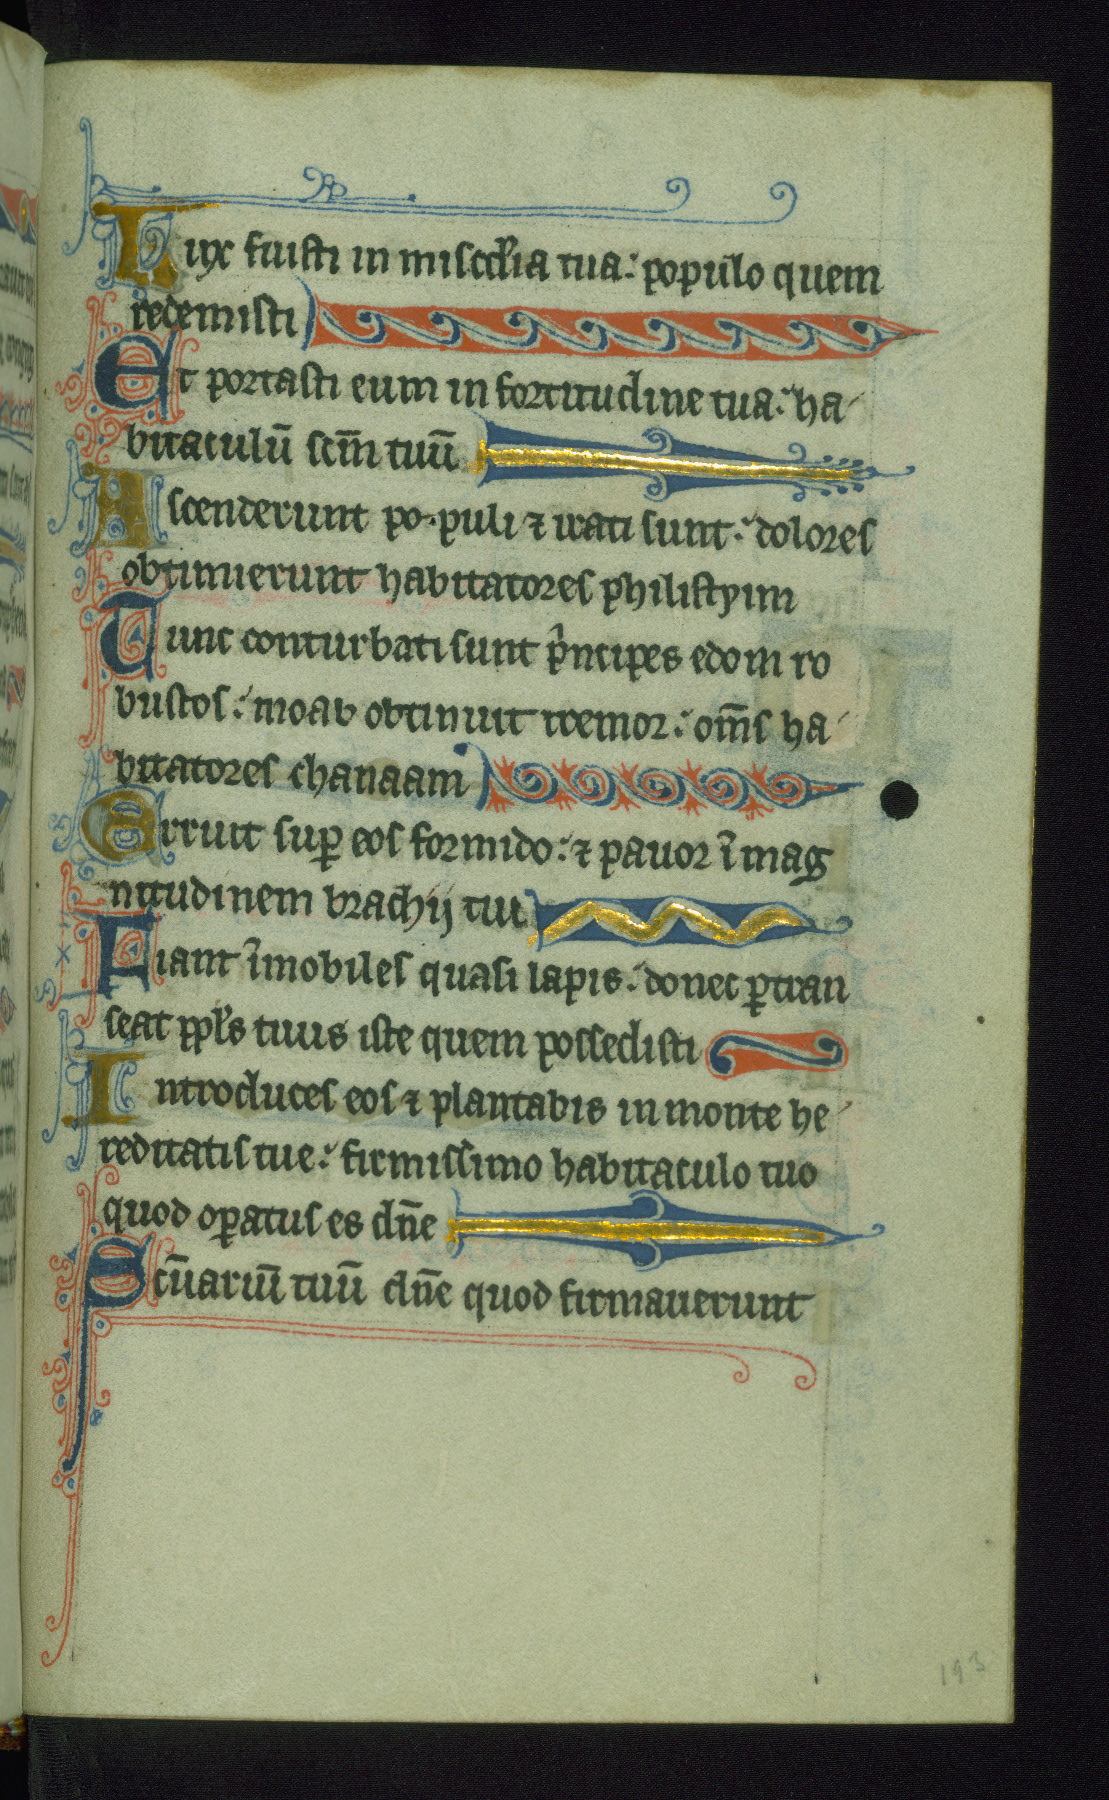 Lux fuisti in misc̄dia tua: populo quem
redemisti
Et portasti eum in fortitudine tua: ha
bitaculū scm̄ tuū
Ascenderunt po.puli ⁊ irati sunt: dolores
obtinuerunt habitatores philistyim
Tunc conturbati sunt p̄ncipes edom ro
bustos: moab obtinuit tremor: om̄s ha
bitatores chanaam
Erruit sup̱ eos formido: ⁊ pauor ī mag
nitudinem brachij tui
Fiant īmobiles quasi lapis: donec p̱tran
seat ppl̄s tuus iste quem possedisti
Introduces eos ⁊ plantabis in monte he
reditatis tue: firmissimo habitaculo tuo
quod op̱atus es dn̄e
Scūariū tuū dn̄e quod firmauerunt
193